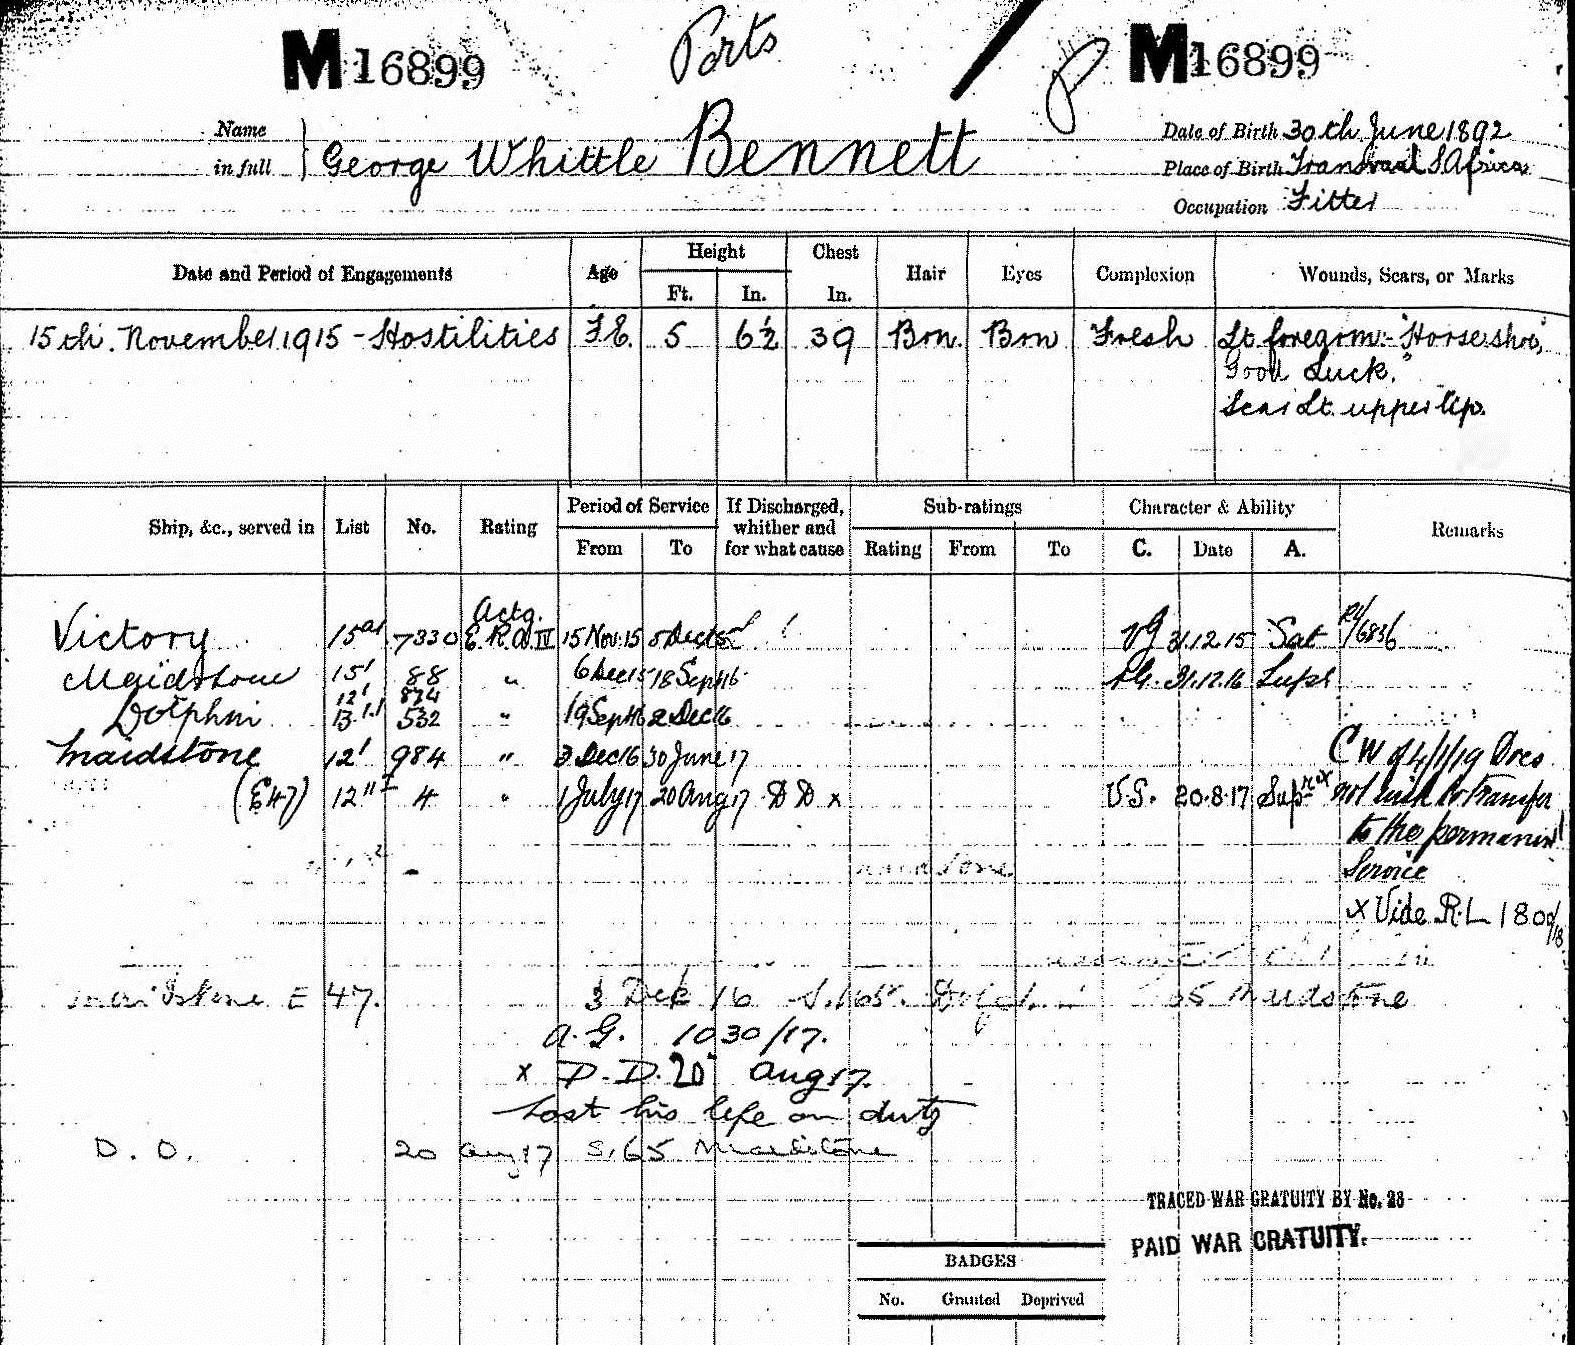 M 16899
Ports
P
M 16899
Name in full George Whittle Bennett
Date of Birth 30th June 1892
Place of Birth Transvaal S Africa
Occupation Fitter
Date and Period of Engagements Age Height Ft. In. Chest In. Hair Eyes Complexion Wounds, Scars, or Marks
15th November 1915 - Hostilities F.E. 5 6½ 39 Brn. Brn Fresh Lt. forearm:- "Horseshoe,
Good Luck."
Scar Lt. upper lip.
Ship, &c., served in List No. Rating Period of Service From To If Discharged, whither and for what cause Sub-ratings Rating From To Character & Ability C. Date A. Remarks
Actg.
Victory 7330 E.R.A. IV 15 Nov. 15 5 Dec 15 VG 31.12.15 Sat
Maidstone 15 88 " 6 Dec 15 18 Sept 16 31.12.16
12 874
Dolphin 13 532 " 19 Sept 16 2 Dec 16
Maidstone 12 984 " 3 Dec 16 30 June 17 CW 94/1/19 Does
(E47) 12 4 " 1 July 17 20 Aug 17 DD x V.G. 20.8.17 not wish to transfer
to the permanent
Service
x Vide R.L 180
Maidstone E 47. 3 Dec 16
A.G. 1030/17.
x D.D. 20 Aug 17.
Lost his life on duty
D. D. 20 Aug 17 S.65 Maidstone
TRACED WAR GRATUITY BY No. 28
PAID WAR GRATUITY.
BADGES
No. Granted Deprived